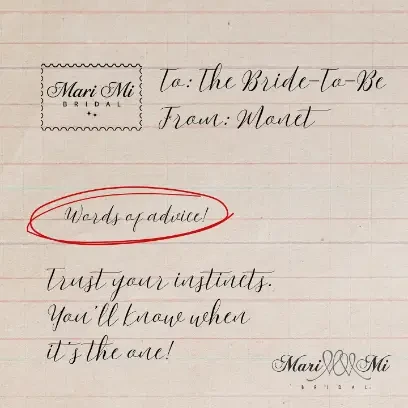 Mari Mi
BRIDAL
To: The Bride-To-Be
From: Monet
Words of advice!
Trust your instincts.
You'll know when
it's the one!
Mari Mi
BRIDAL